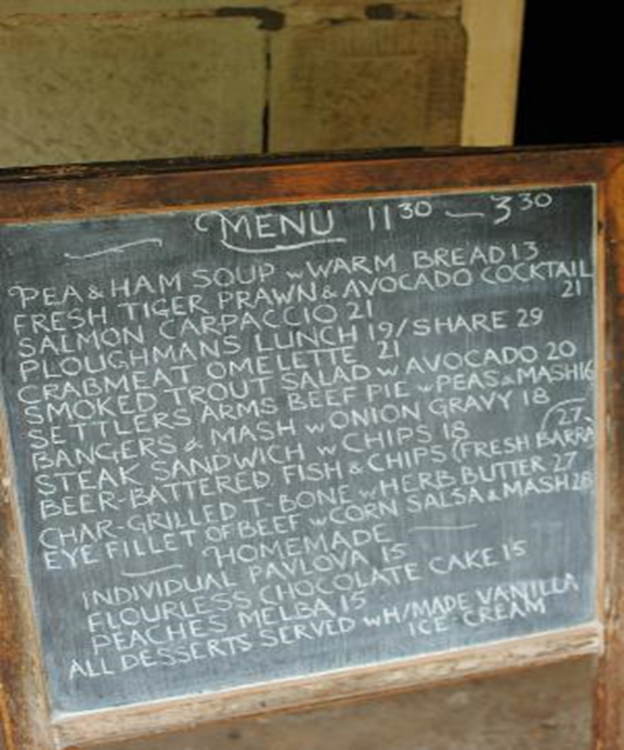 MENU 11 30 - 3 30
PEA & HAM SOUP w WARM BREAD 13
FRESH TIGER PRAWN & AVOCADO COCKTAIL
21
SALMON CARPACCIO 21
PLOUGHMANS LUNCH 19/SHARE 29
CRABMEAT OMELETTE 21
SMOKED TROUT SALAD w AVOCADO 20
SETTLERS ARMS BEEF PIE w PEAS & MASH 16
BANGERS & MASH w ONION GRAVY 18
STEAK SANDWICH w CHIPS 18
27
BEER-BATTERED FISH & CHIPS (FRESH BARRA
CHAR-GRILLED T-BONE w HERB BUTTER 27
EYE FILLET OF BEEF w CORN SALSA & MASH 28
HOMEMADE
INDIVIDUAL PAVLOVA 15
FLOURLESS CHOCOLATE CAKE 15
PEACHES MELBA 15
ALL DESSERTS SERVED w H/MADE VANILLA
ICE CREAM